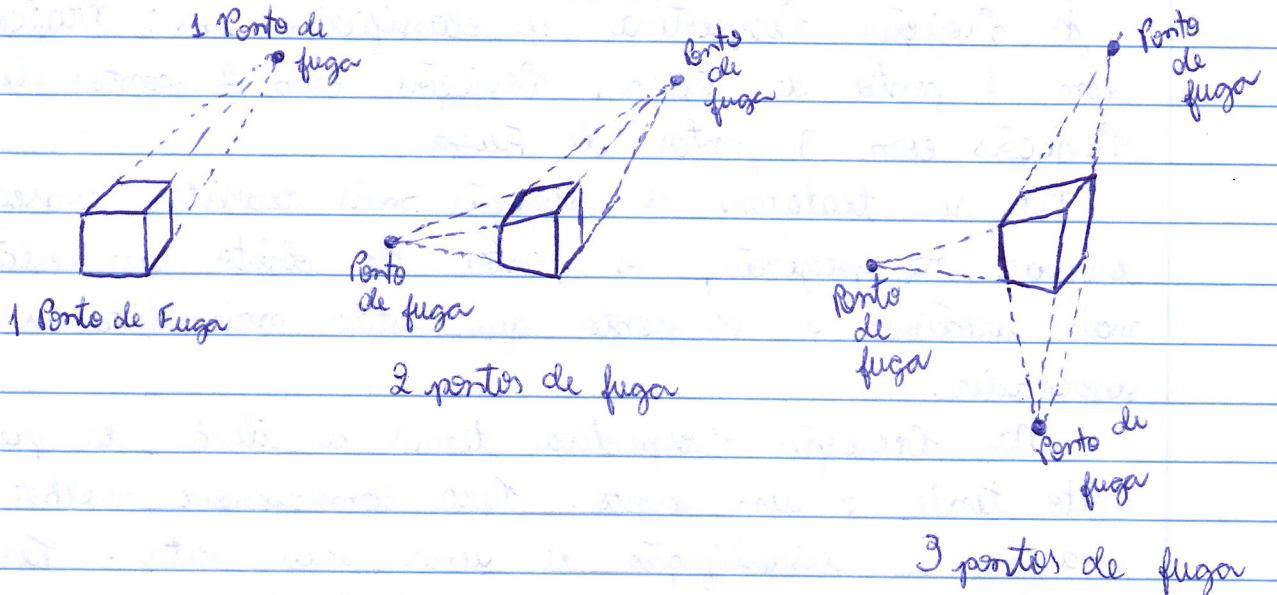 1 Ponto de
fuga
1 Ponto de Fuga
Ponto
de
fuga
Ponto
de fuga
2 pontos de fuga
Ponto
de
fuga
Ponto
de
fuga
Ponto de
fuga
3 pontos de fuga